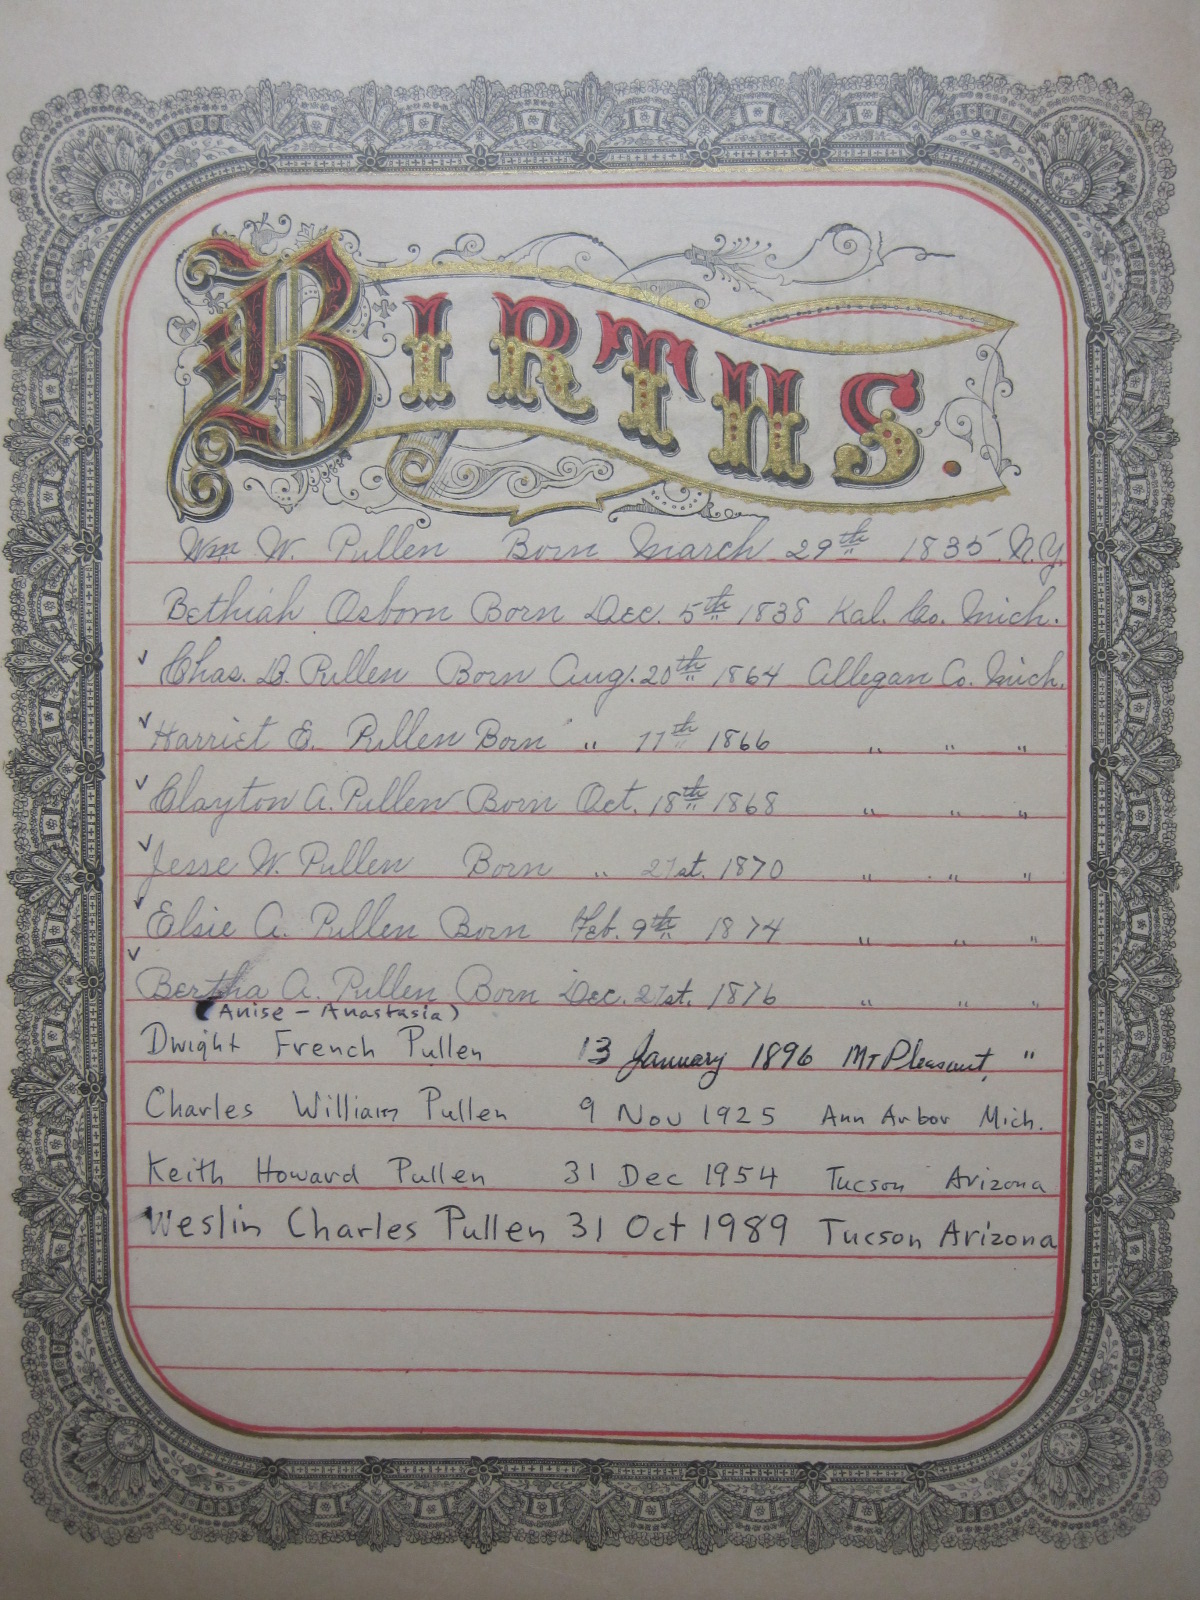 BIRTHS.
Wm. W. Pullen Born March 29th 1835 N.Y.
Bethiah Osborn Born Dec. 5th 1838 Kal. Co. Mich.
✓ Chas. D. Pullen Born Aug. 20th 1864 Allegan Co. Mich.
✓ Harriet E. Pullen Born " 11th 1866 " " "
✓ Clayton A. Pullen Born Oct. 18th 1868 " " "
✓ Jesse W. Pullen Born " 21st. 1870 " " "
✓ Elsie A. Pullen Born Feb. 9th 1874 " " "
✓ Bertha A. Pullen Born Dec. 21st. 1876 " " "
(Anise - Anastasia)
Dwight French Pullen 13 January 1896 Mt Pleasant, "
Charles William Pullen 9 Nov 1925 Ann Arbor Mich.
Keith Howard Pullen 31 Dec 1954 Tucson Arizona
Weslin Charles Pullen 31 Oct 1989 Tucson Arizona